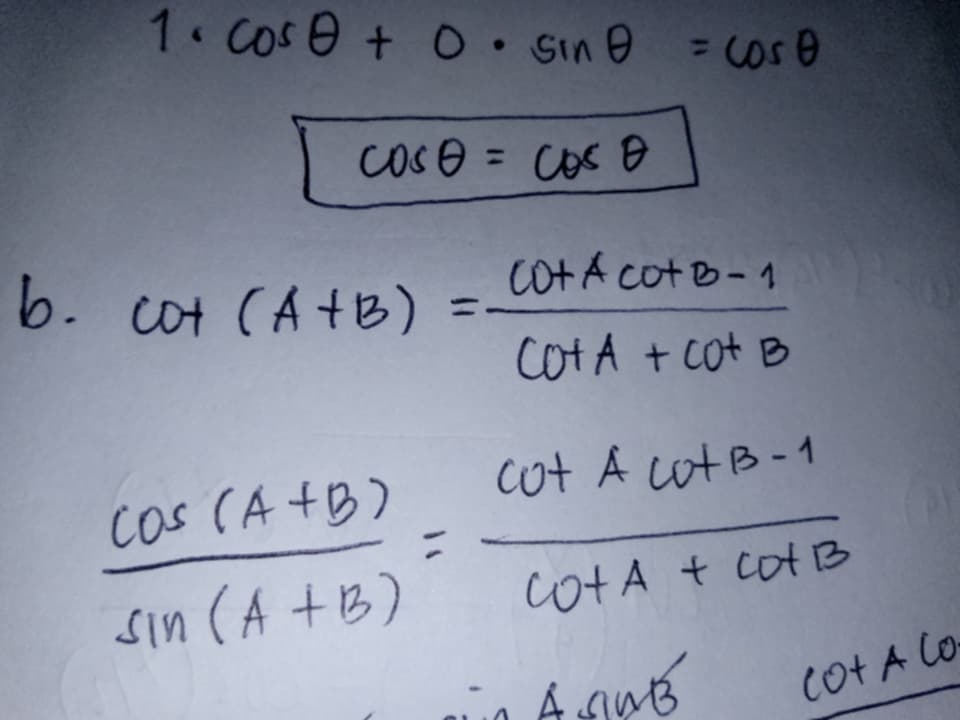 1 · cos θ + 0 · sin θ = cos θ
cos θ = cos θ
b. cot (A + B) = cot A cot B - 1
cot A + cot B
cos (A + B) = cot A cot B - 1
sin (A + B) cot A + cot B
A sin B cot A